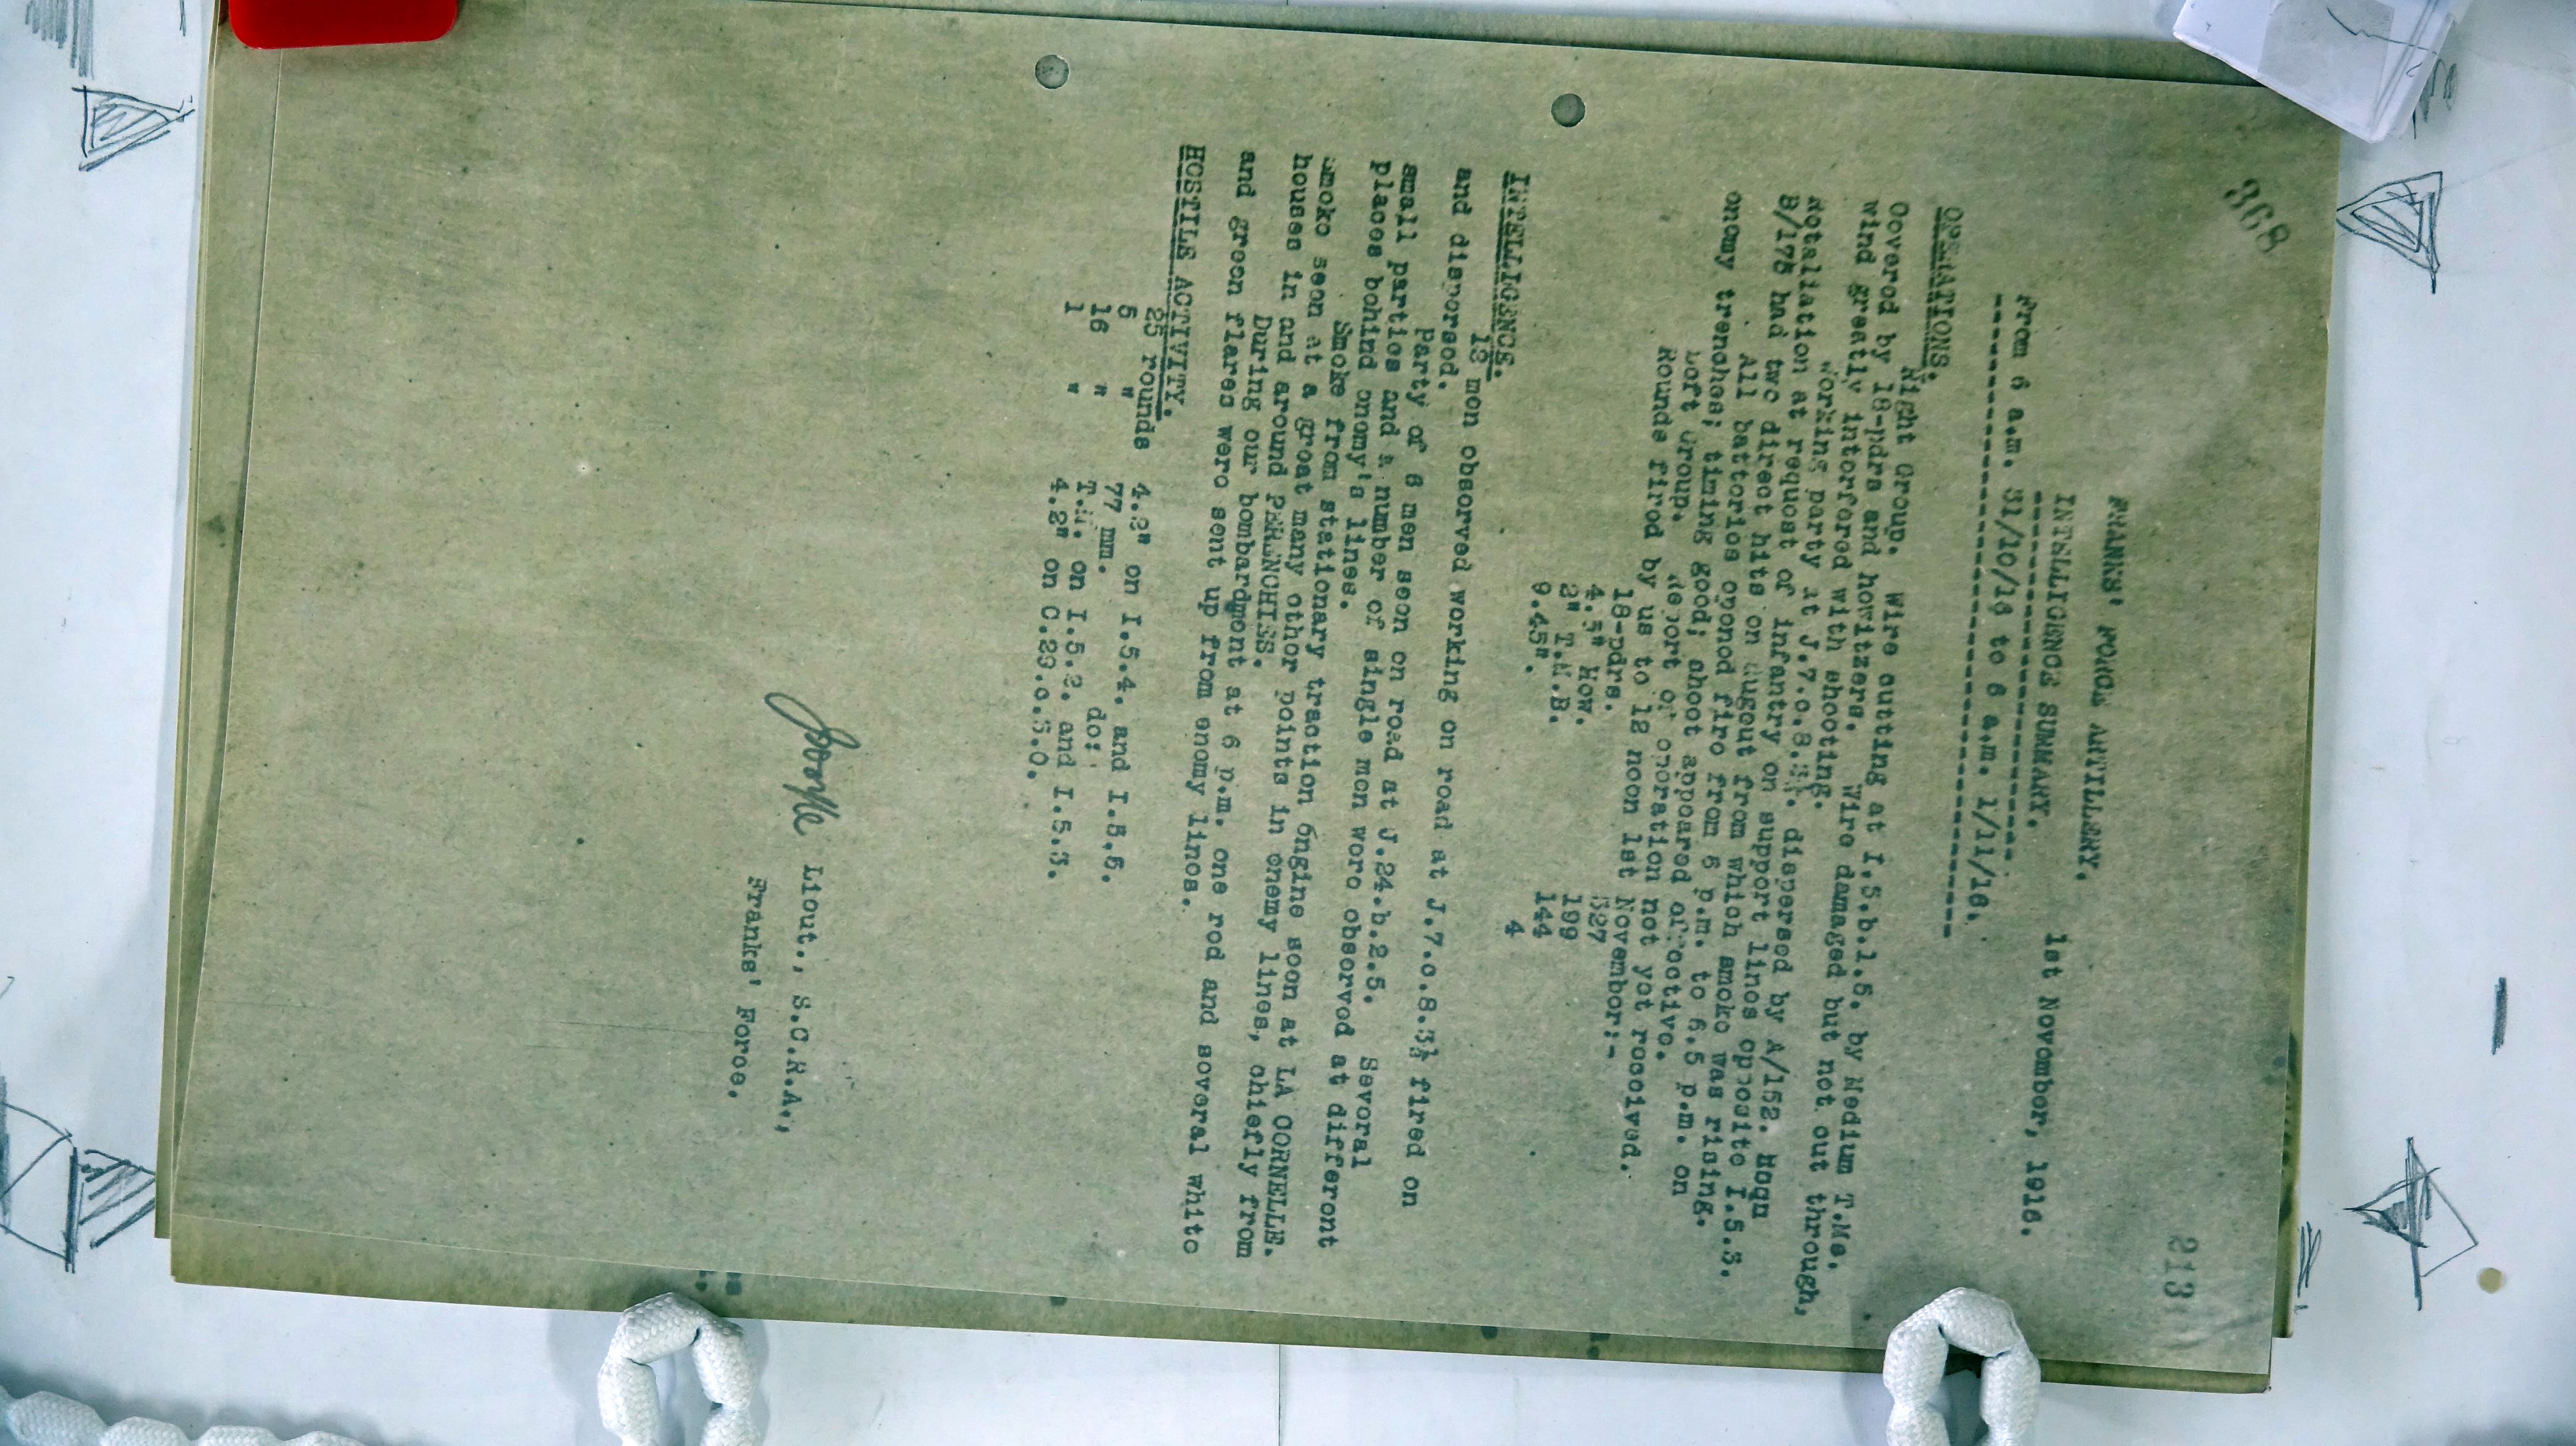 368
213
FRANKS' FORCE ARTILLERY.
INTELLIGENCE SUMMARY. 1st November, 1916.
From 6 a.m. 31/10/16 to 6 a.m. 1/11/16.
OPERATIONS.
Right Group. Wire cutting at I.5.b.1.5. by Medium T.Ms.
Covered by 18-pdrs and howitzers. Wire damaged but not cut through,
wind greatly interfered with shooting.
Working party at J.7.c.8.3½. dispersed by A/152.
Retaliation at request of infantry on support lines opposite I.5.3.
B/175 had two direct hits on dugout from which smoke was rising.
All batteries opened fire from 6 p.m. to 6.5 p.m. on
enemy trenches; timing good; shoot appeared effective.
Left Group. Report of operation not yet received.
Rounds fired by us to 12 noon 1st November:-
18-pdrs. 527
4.5" How. 199
2" T.M.B. 144
9.45". 4
INTELLIGENCE.
12 men observed working on road at J.7.c.8.3½ fired on
and dispersed.
Party of 6 men seen on road at J.24.b.2.5. Several
small parties and a number of single men were observed at different
places behind enemy's lines.
Smoke from stationary traction engine seen at LA CORNELLE.
Smoke seen at a great many other points in enemy lines, chiefly from
houses in and around PERENCHIES.
During our bombardment at 6 p.m. one red and several white
and green flares were sent up from enemy lines.
HOSTILE ACTIVITY.
25 rounds 4.2" on I.5.4. and I.5.5.
5 " 77 mm. do:
16 " T.M. on I.5.2. and I.5.3.
1 " 4.2" on C.29.c.5.0.
Lieut., S.C.R.A.,
Franks' Force.